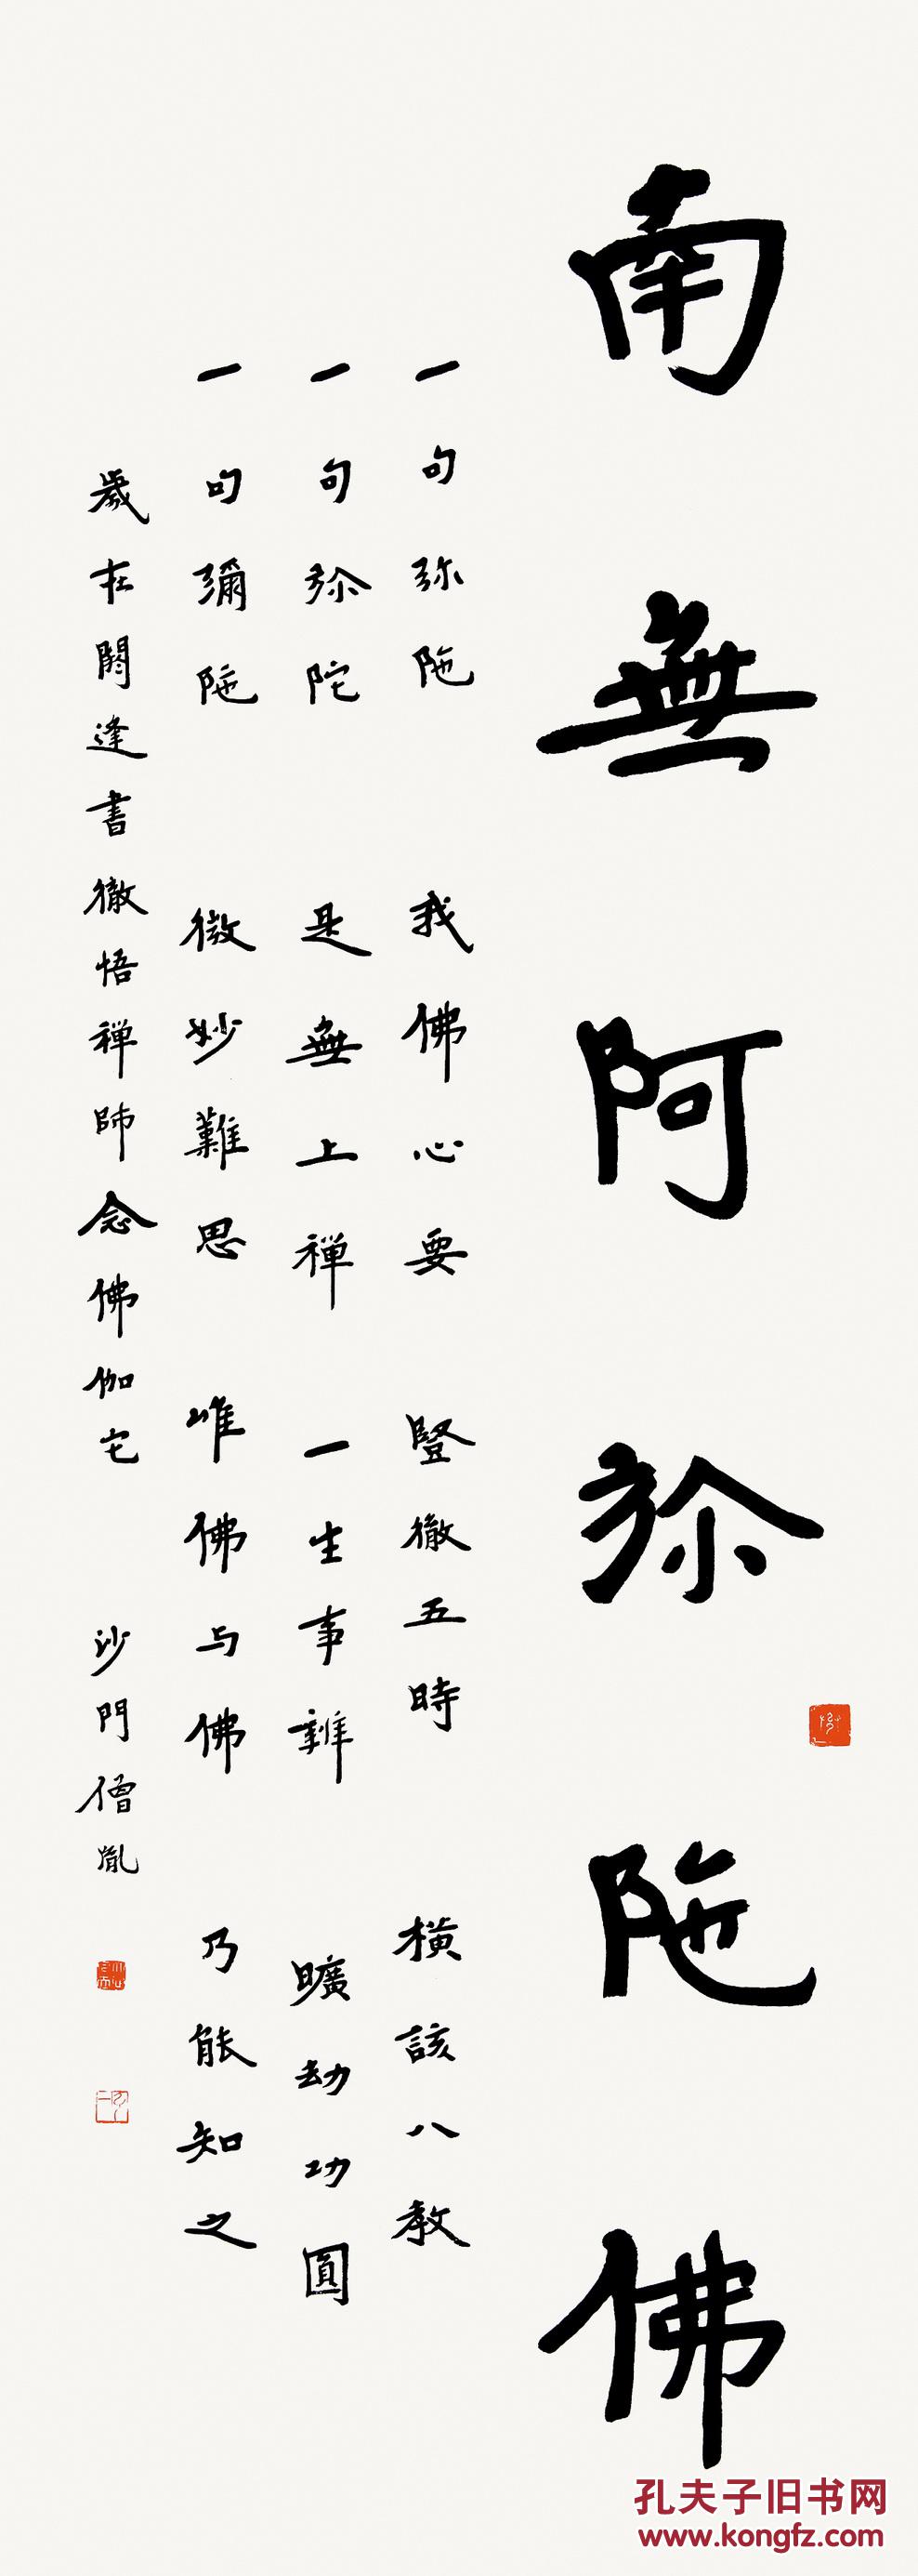 南無阿弥陁佛
一句弥陁 我佛心要 豎徹五時 橫該八教
一句弥陀 是無上禅 一生事辦 曠劫功圓
一句彌陁 微妙難思 唯佛与佛 乃能知之
歲在閼逢書徹悟禅師念佛伽它 沙門僧胤
孔夫子旧书网
www.kongfz.com